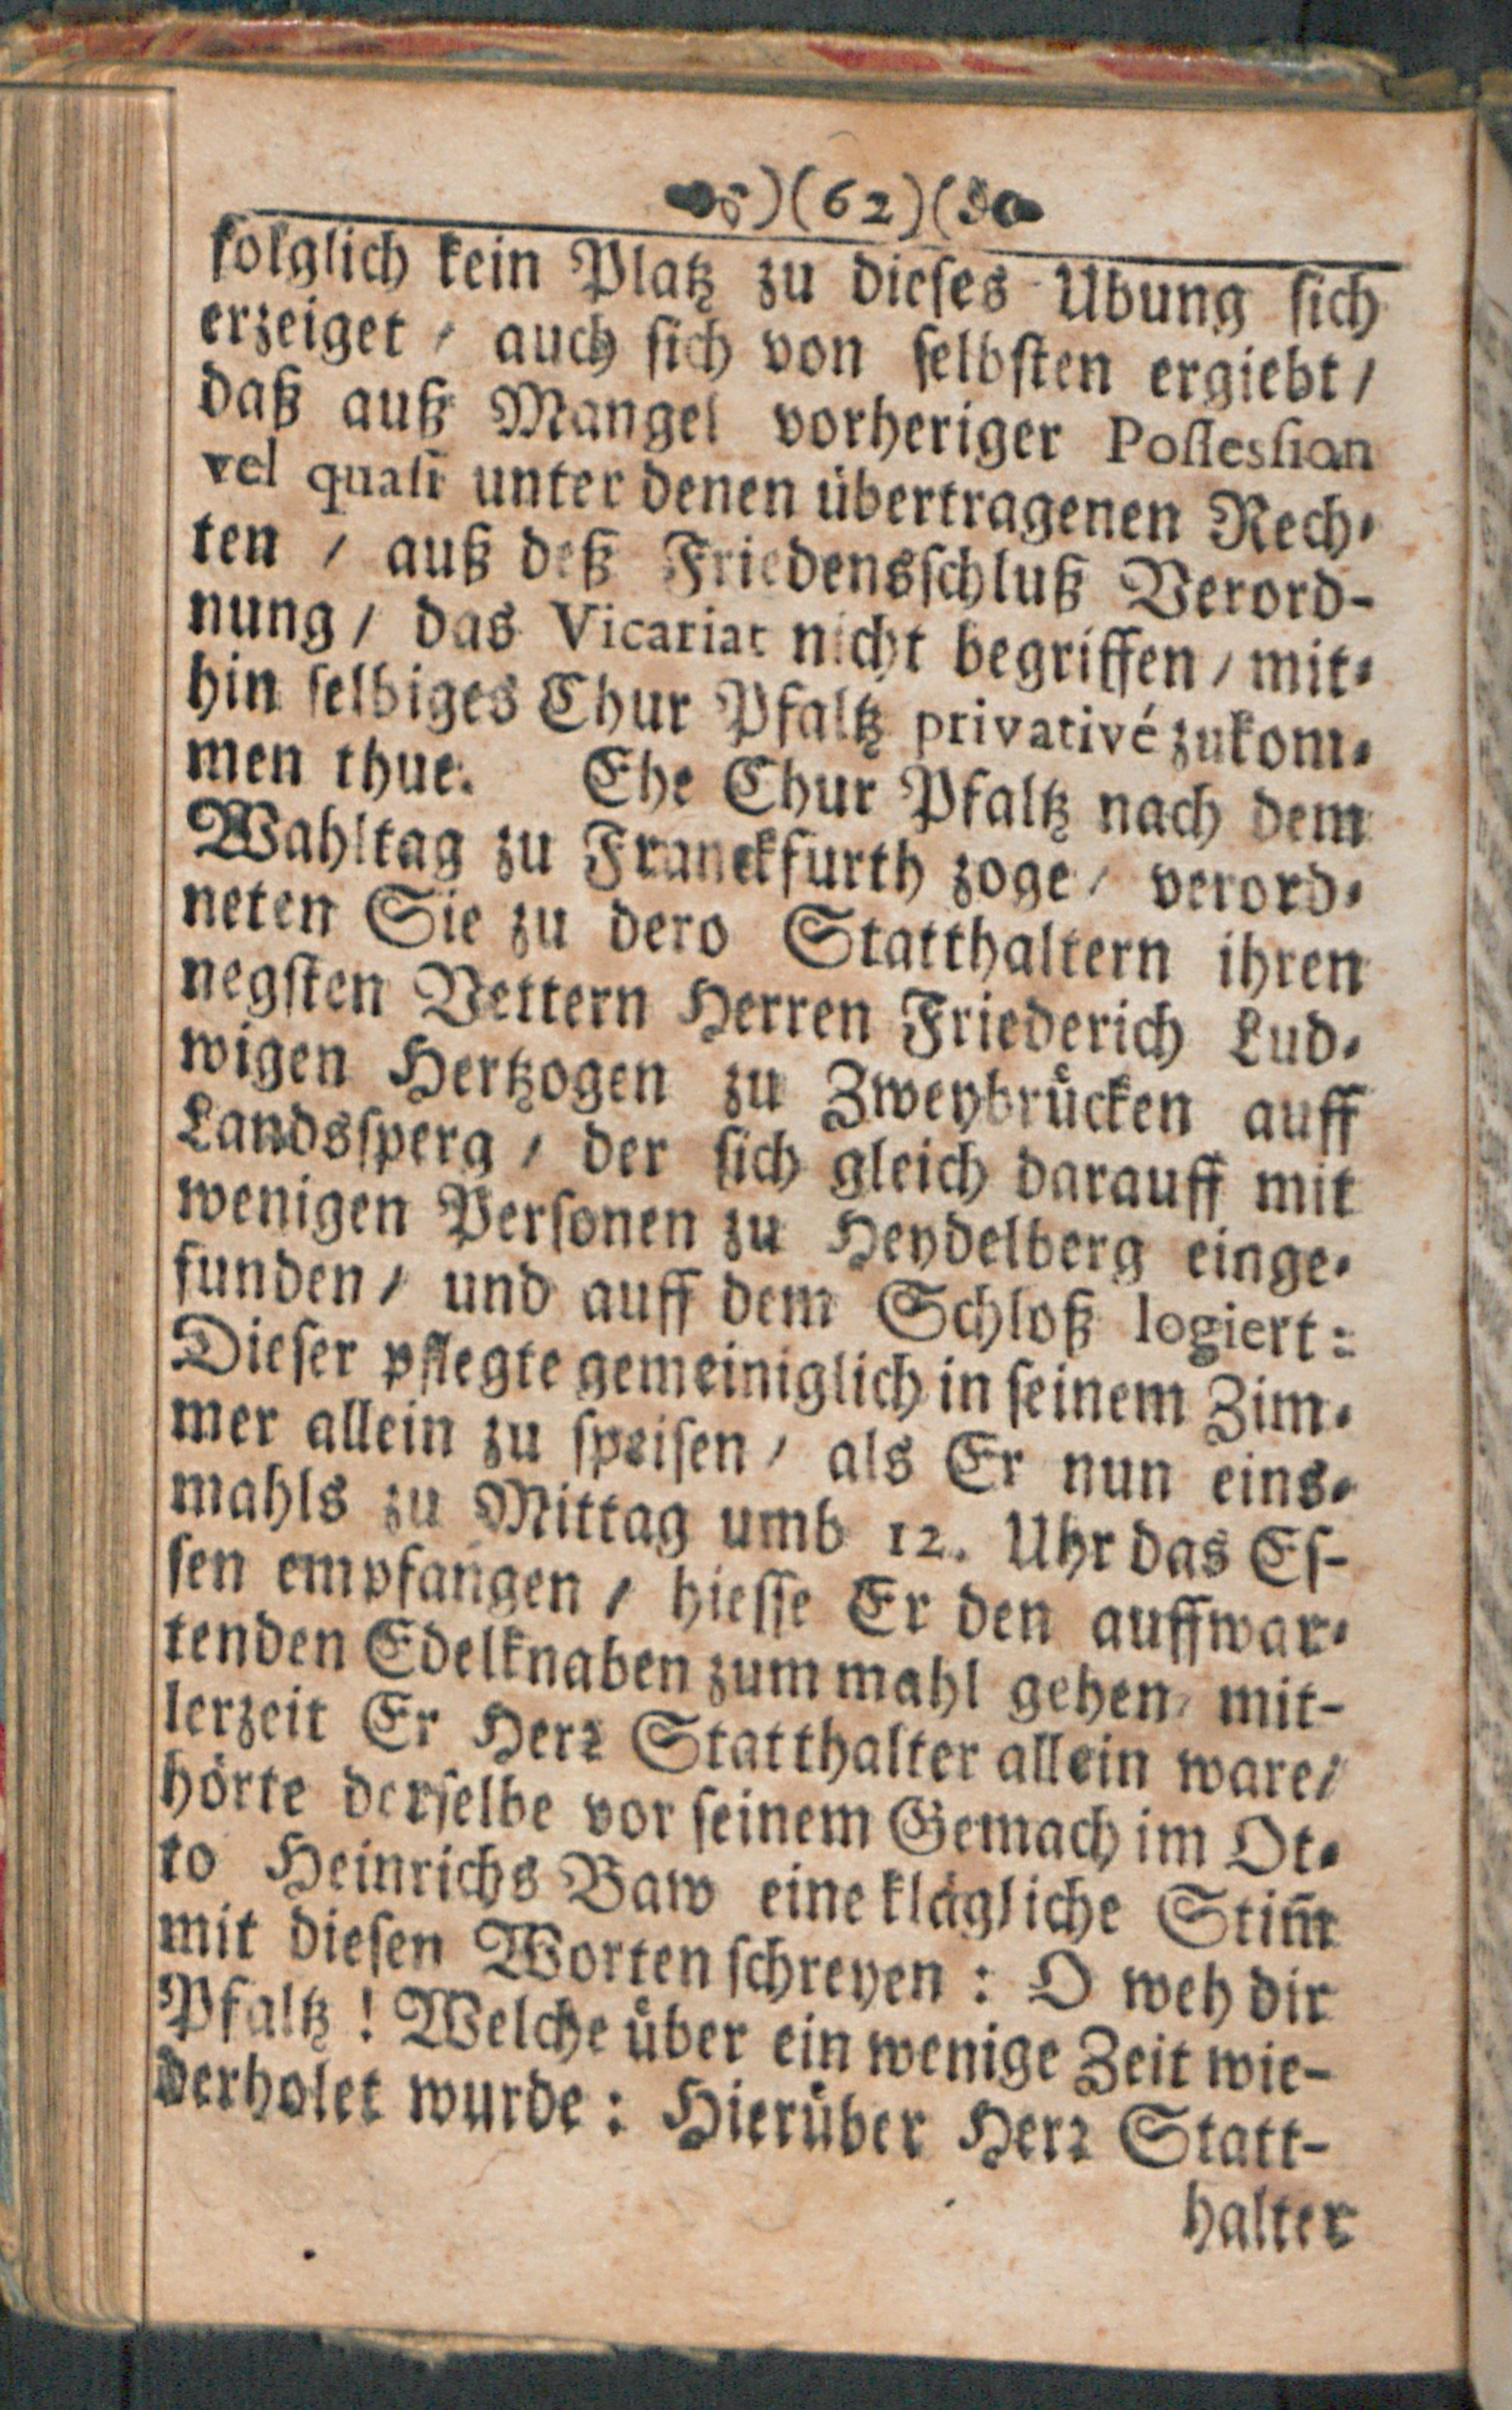 )(62)(
folglich kein Platz zu dieses Übung sich
erzeiget / auch sich von selbsten ergiebt /
daß auß Mangel vorheriger Possession
vel quasi unter denen übertragenen Rech-
ten / auß deß Friedensschluß Verord-
nung / das Vicariat nicht begriffen / mit-
hin selbiges Chur Pfaltz privativé zukom-
men thue. Ehe Chur Pfaltz nach dem
Wahltag zu Franckfurth zoge / verord-
neten Sie zu dero Statthaltern ihren
negsten Vettern Herren Friederich Lud-
wigen Hertzogen zu Zweybrücken auff
Landssperg / der sich gleich darauff mit
wenigen Personen zu Heydelberg einge-
funden / und auff dem Schloß logiert:
Dieser pflegte gemeiniglich in seinem Zim-
mer allein zu speisen / als Er nun eins-
mahls zu Mittag umb 12. Uhr das Es-
sen empfangen / hiesse Er den auffwar-
tenden Edelknaben zum mahl gehen / mit-
lerzeit Er Herꝛ Statthalter allein ware /
hörte derselbe vor seinem Gemach im Ot-
to Heinrichs Baw eine klägliche Stim̄
mit diesen Worten schreyen : O weh dir
Pfaltz ! Welche über ein wenige Zeit wie-
derholet wurde : Hierüber Herꝛ Statt-
halter